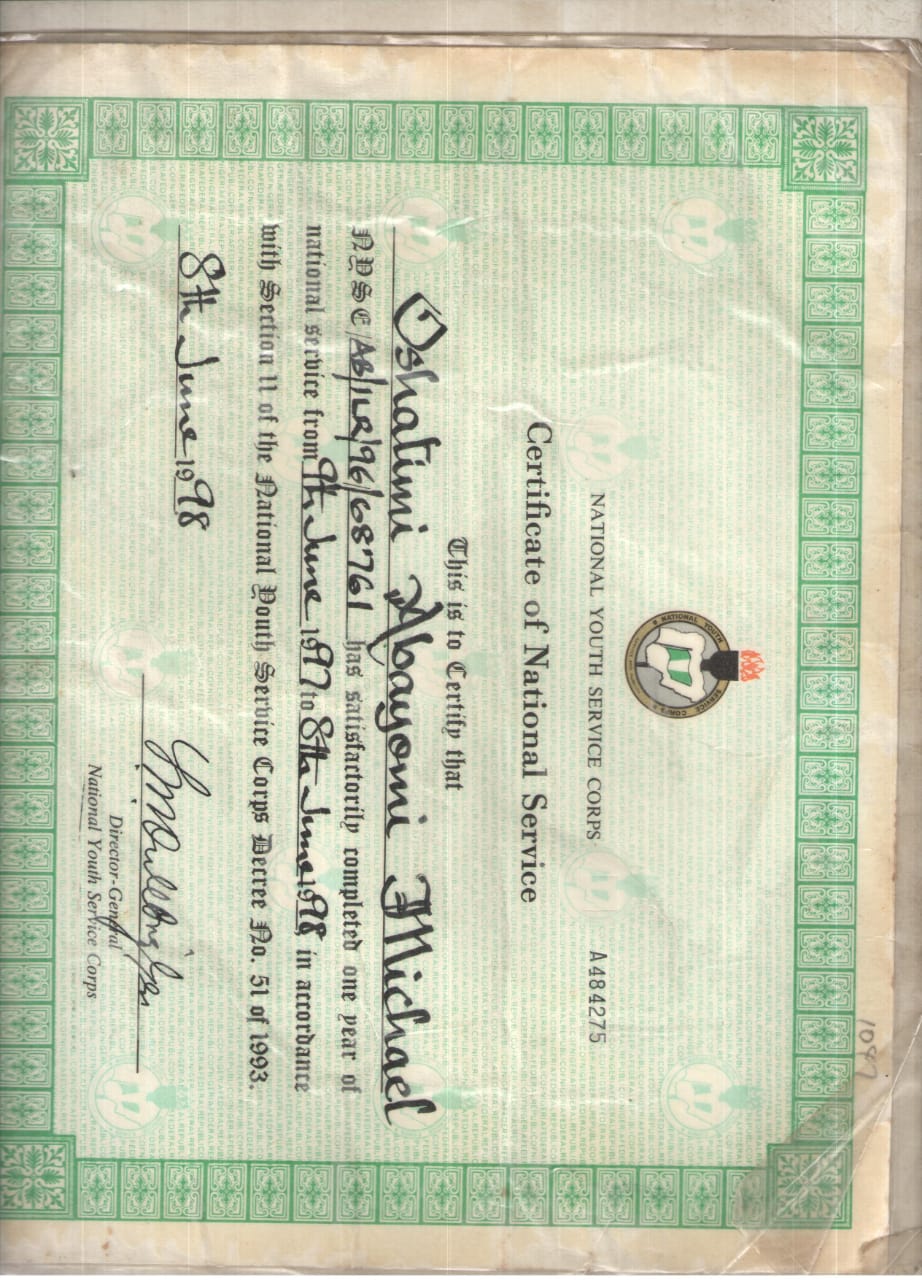 1047
NATIONAL YOUTH SERVICE CORPS
NATIONAL YOUTH SERVICE CORPS
A484275
Certificate of National Service
This is to Certify that
Oshatimi Abayomi Michael
NYSC/AB/ILR/96/68761 has satisfactorily completed one year of
national service from 9th June 1997 to 8th June 1998 in accordance
with Section 11 of the National Youth Service Corps Decree No. 51 of 1993.
8th June 1998
Director-General
National Youth Service Corps